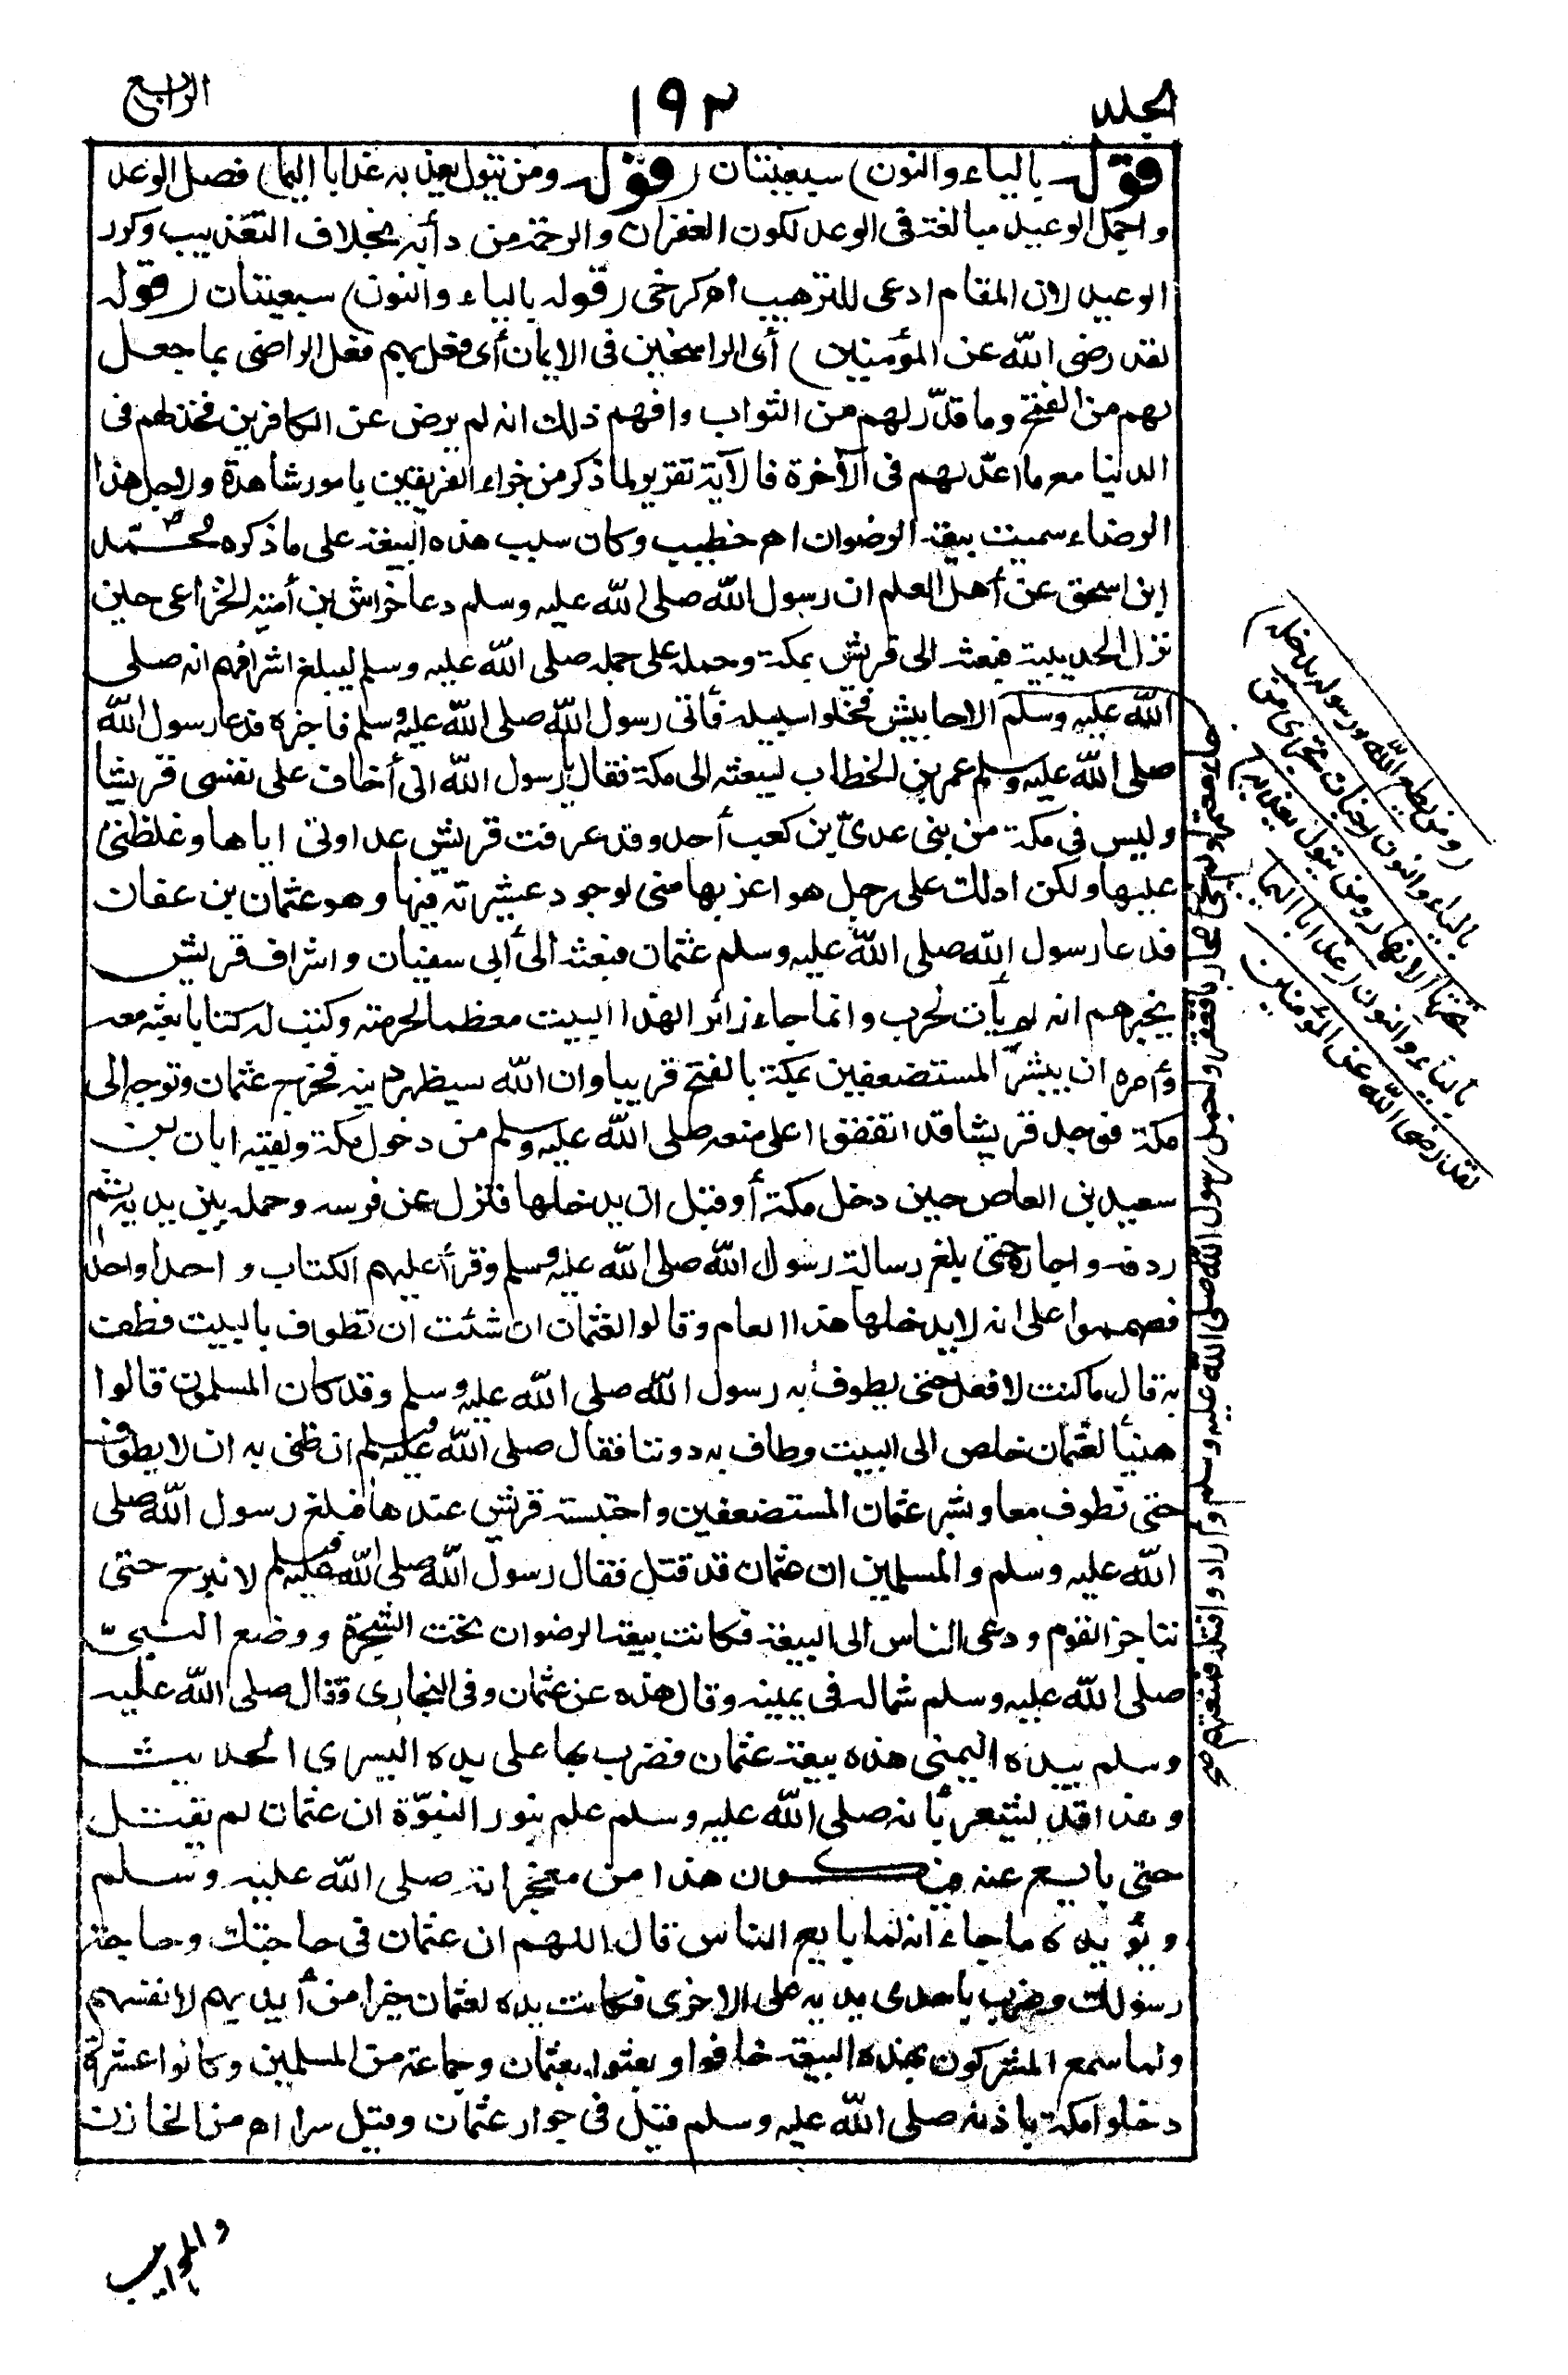 الجلد ١٩٢ الرابع
قوله بالياء والنون) سبعيتان (قوله ومن يتول يعذبه عذابا اليما) فصل الوعد
واجمل الوعيد مبالغة فى الوعد لكون الغفران والرحمة من دأبه بخلاف التعذيب وكرر
الوعيد لان المقام ادعى للترهيب اه كرخى (قوله بالياء والنون) سبعيتان (قوله
لقد رضى الله عن المؤمنين) أى الراسخين فى الايمان أى فعل بهم فعل الراضى بما جعل
لهم من الفتح وما قدّر لهم من الثواب وافهم ذلك انه لم يرض عن الكافرين فخذلهم فى
الدنيا مع ما اعدّ لهم فى الآخرة فالآية تقرير لما ذكر من جزاء الفريقين بامور شاهدة ولاجل هذا
الرضاء سميت بيعة الرضوان اه خطيب وكان سبب هذه البيعة على ما ذكره محمّد
بن اسحق عن أهل العلم ان رسول الله صلى الله عليه وسلم دعا خراش بن أمية الخزاعى حين
نزل الحديبية فبعثه الى قريش بمكة وحمله على جمله صلى الله عليه وسلم ليبلغ اشرافهم انه صلى
الله عليه وسلم الاحابيش فخلوا سبيله فأتى رسول الله صلى الله عليه وسلم فاخبره فدعا رسول الله
صلى الله عليه وسلم عمر بن الخطاب ليبعثه الى مكة فقال يا رسول الله انى أخاف على نفسى قريشا
وليس فى مكة من بنى عدىّ بن كعب أحد وقد عرفت قريش عداوتى اياها وغلظتى
عليها ولكن ادلك على رجل هو اعز بها منى لوجود عشيرته فيها وهو عثمان بن عفان
فدعا رسول الله صلى الله عليه وسلم عثمان فبعثه الى أبى سفيان واشراف قريش
يخبرهم انه لم يأت لحرب وانما جاء زائرا لهذا البيت معظما لحرمته وكتب له كتابا بعثه معه
وأمره ان يبشرّ المستضعفين بمكة بالفتح قريبا وان الله سيظهر دينه فخرج عثمان وتوجه الى
مكة فوجد قريشا قد اتفقوا على منعه صلى الله عليه وسلم من دخول مكة ولقيه ابان بن
سعيد بن العاص حين دخل مكة أو قبل ان يدخلها فنزل عن فرسه وحمله بين يديه ثم
ردفه واجاره حتى بلغ رسالة رسول الله صلى الله عليه وسلم وقرأ عليهم الكتاب واحدا واحدا
فصمموا على انه لا يدخلها هذا العام وقالوا لعثمان ان شئت ان تطوف بالبيت فطف
به قال ما كنت لافعل حتى يطوف به رسول الله صلى الله عليه وسلم وقد كان المسلمون قالوا
هنيأ لعثمان خلص الى البيت وطاف به دوننا فقال صلى الله عليه وسلم ان ظنى به ان لا يطوف
حتى نطوف معا وبشر عثمان المستضعفين واحتبسته قريش عندها فبلغ رسول الله صلى
الله عليه وسلم والمسلمين ان عثمان قد قتل فقال رسول الله صلى الله عليه وسلم لا نبرح حتى
نناجز القوم ودعى الناس الى البيعة فكانت بيعة الرضوان تحت الشجرة ووضع النبىّ
صلى الله عليه وسلم شماله فى يمينه وقال هذه عن عثمان وفى البخارى فقال صلى الله عليه
وسلم بيده اليمنى هذه بيعة عثمان فضرب بها على يده اليسرى الحديث
وهذا قد يشعر بأنه صلى الله عليه وسلم علم بنور النبوّة ان عثمان لم يقتل
حتى بايع عنه فيكون هذا من معجزاته صلى الله عليه وسلم
ويؤيده ما جاء انه لما بايع الناس قال اللهم ان عثمان فى حاجتك وحاجة
رسولك وضرب باحدى يديه على الاخرى فكانت يده لعثمان خيرا من أيديهم لانفسهم
ولما سمع المشركون بهذه البيعة خافوا وبعثوا بعثمان وجماعة من المسلمين وكانوا عشرة
دخلوا مكة باذنه صلى الله عليه وسلم قيل فى جوار عثمان وقيل سرا اه من الخازن
(ومن يطع الله ورسوله يدخله)
بالياء والنون (جنات تجرى من
تحتها الانهار ومن يتول يعذبه)
بالياء والنون (عذابا اليما
لقد رضى الله عن المؤمنين
جاء معتمرا ولم يجئ محاربا فعقروا جمل رسول الله صلى الله عليه وسلم وأرادوا قتله فمنعتهم صح
والمواهب